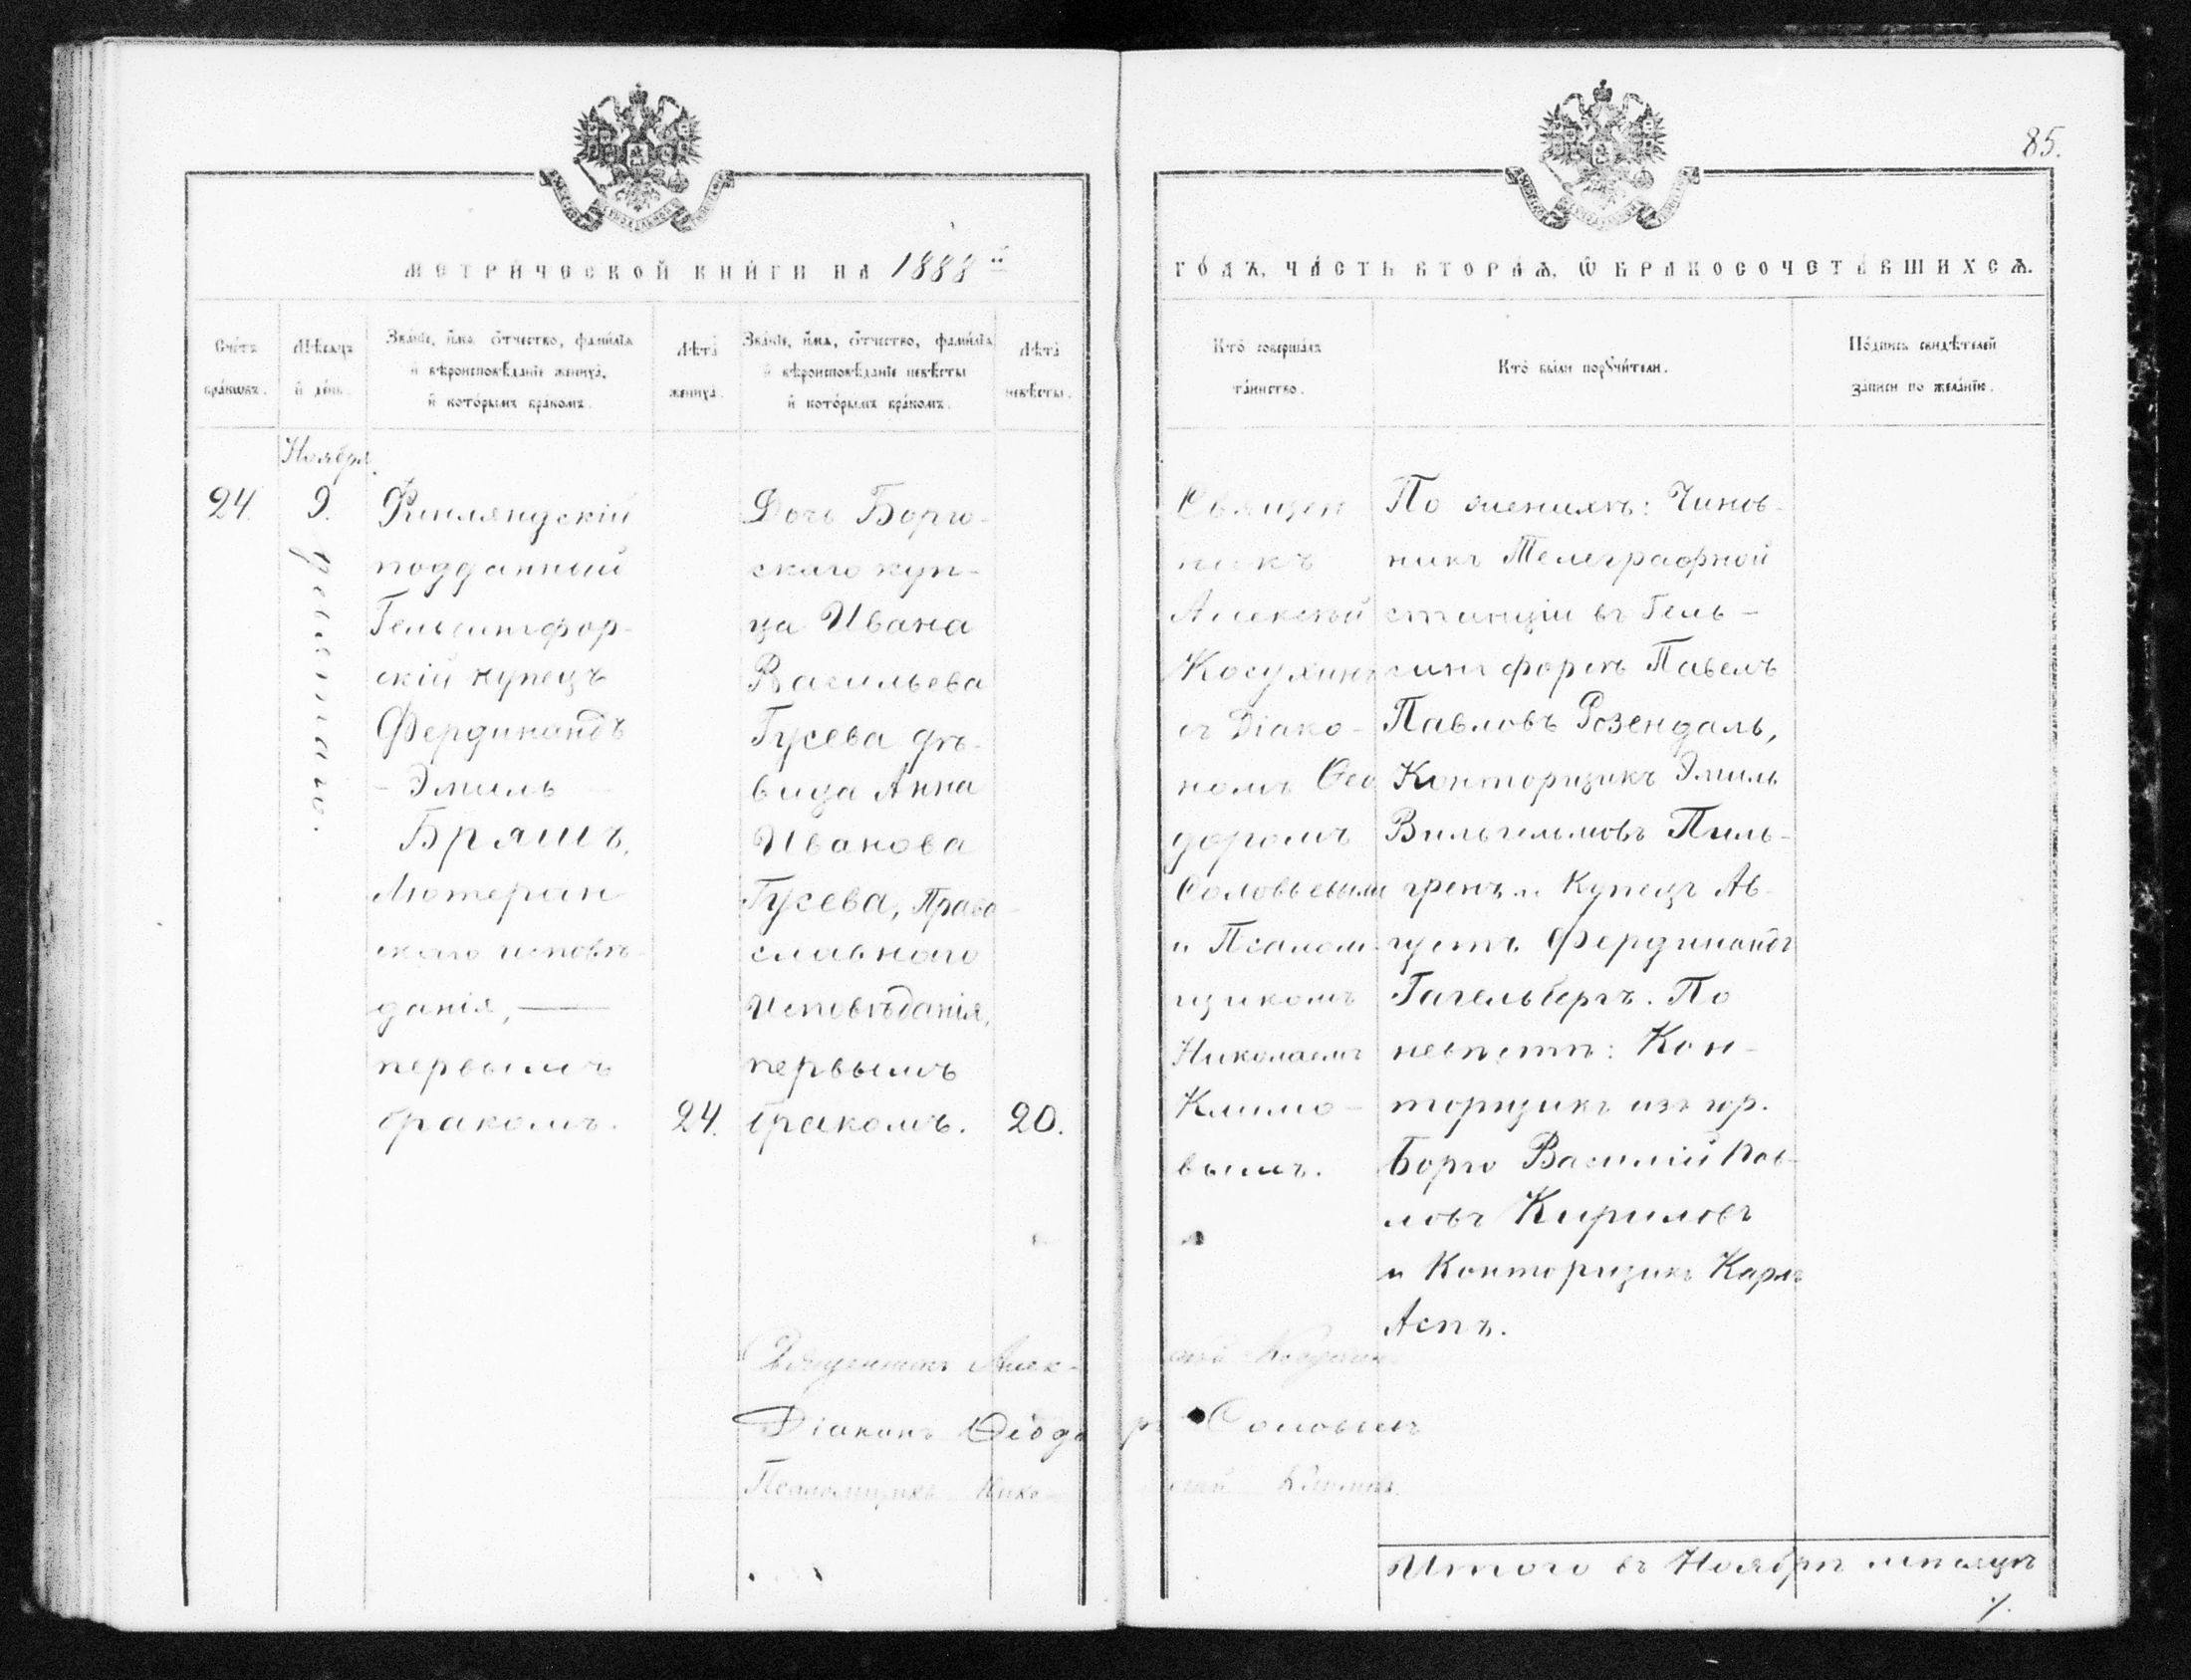 85.
МЕТРИ́ЧЕСКОЙ КНИ́ГИ НА 1888 й
ГО́ДЪ, ЧА́СТЬ ВТОРА́Ѧ, Ѽ БРАКОСОЧЕТА́ВШИХСѦ.
Сче́тъ
бра́ковъ.
Мѣ́сяцъ
и҆ де́нь.
Зва́нїе, и҆́мѧ ѻ҆́тчество, фами́лїѧ
и҆ вѣроисповѣ́данїе жениха̀,
и҆ кото́рымъ бра́комъ.
Лѣта̀
жениха̀.
Зва́нїе, и҆́мѧ, ѻ҆́тчество, фами́лїѧ
и҆ вѣроисповѣ́данїе невѣ́сты
и҆ кото́рымъ бра́комъ.
Лѣта̀
невѣ́сты.
Кто̀ соверша́лъ
та́инство.
Кто̀ бы́ли порꙋчи́тели.
По́дпись свидѣ́телей
за́писи по жела́нїю.
Ноября.
24.
9.
девятаго.
Финляндскій
подданный
Гельсингфор-
скій купецъ
Фердинандъ
- Эмиль -
Бряшъ,
Лютеран
скаго исповѣ-
данія, —
первымъ
бракомъ.
24.
Дочь Борго-
скаго куп-
ца Ивана
Васильева
Гусева дѣ-
вица Анна
Иванова
Гусева, Право-
славнаго
Исповѣданія,
первымъ
бракомъ.
20.
Священ
никъ
Алексѣй
Косухинъ
съ Діако-
номъ Ѳео
доромъ
Соловьевымъ
и Псалом-
щикомъ
Николаемъ
Климо-
вымъ.
По женихѣ: Чинов-
никъ Телеграфной
станціи въ Гель-
сингфорсѣ Павелъ
Павловъ Розендаль,
Конторщикъ Эмиль
Вильгельмовъ Пиль-
гренъ и Купецъ Ав-
густъ Фердинандъ
Гагельбергъ. По
невѣстѣ: Кон-
торщикъ изъ гор.
Борго Василій Пав-
ловъ Кириловъ
и Конторщикъ Карлъ
Аспъ.
Священникъ Алек-сѣй Косухинъ
Діаконъ Ѳеодоръ Соловьевъ
Псаломщикъ Нико-лай Климовъ.
Итого въ Ноябрѣ мѣсяцѣ
1.